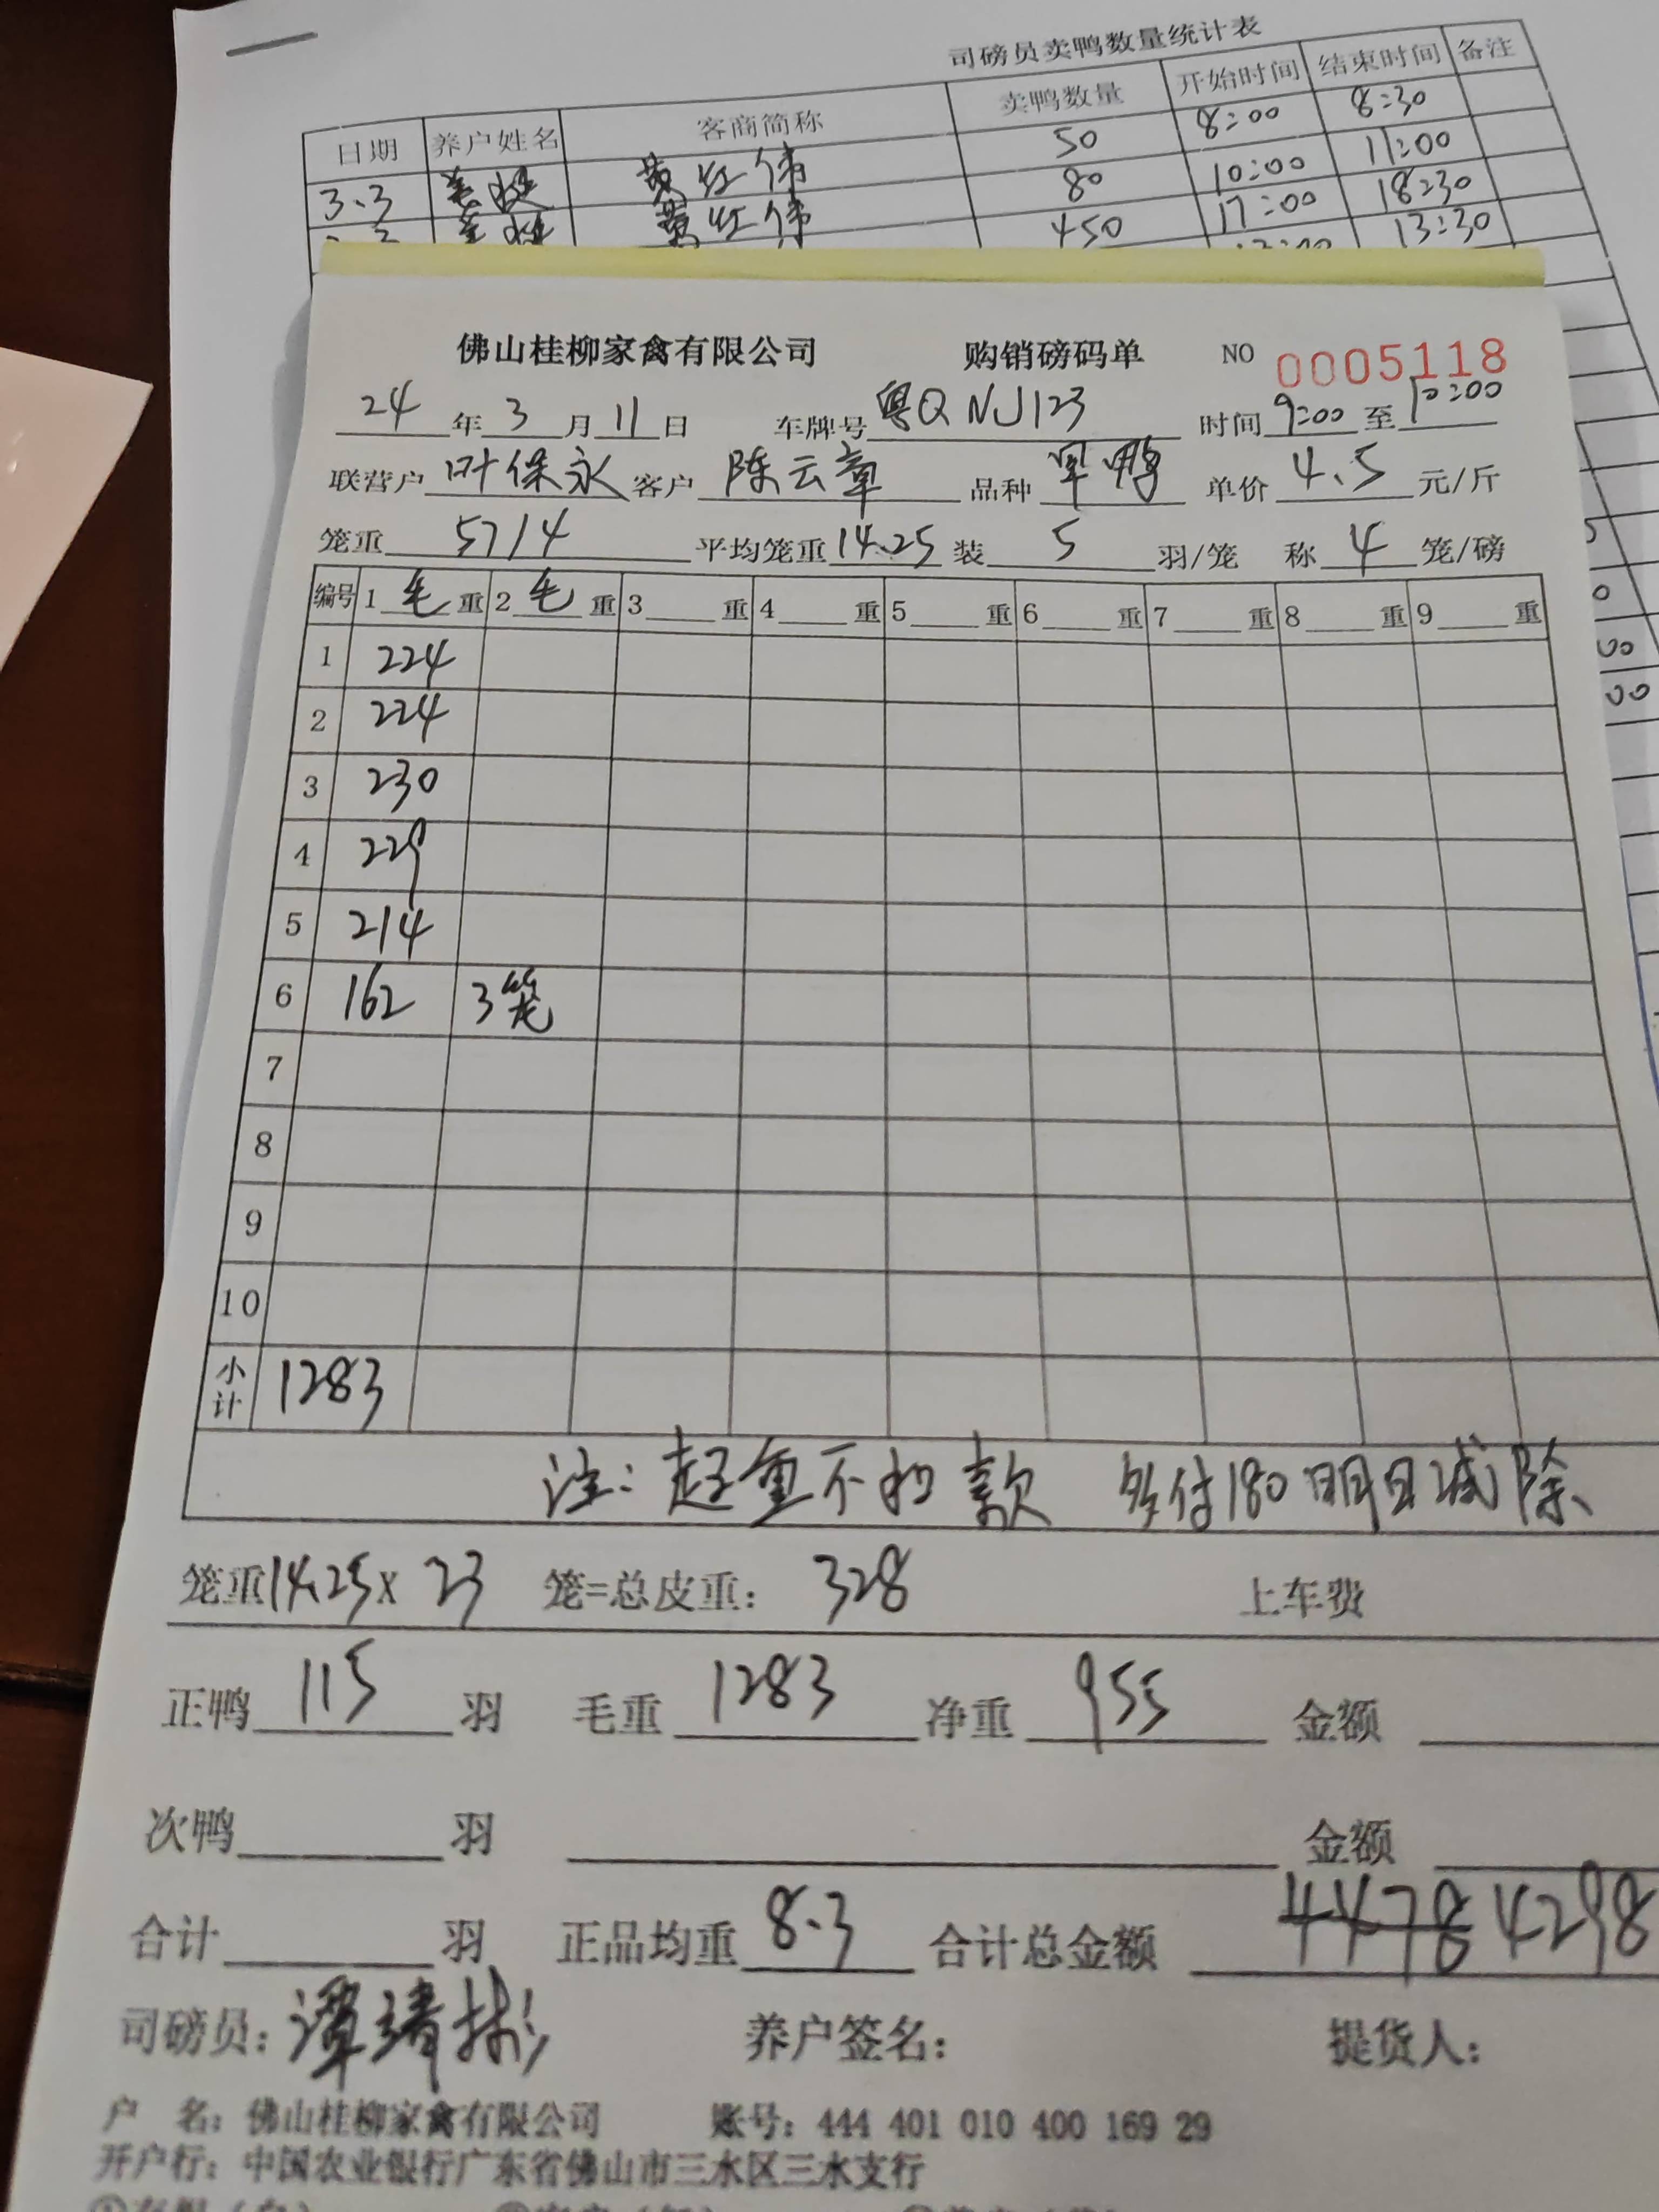 司磅员卖鸭数量统计表
日期 养户姓名 客商简称 卖鸭数量 开始时间 结束时间 备注
3.3 黄红伟 50 8:00 8:30
黄红伟 80 10:00 11:00
450 17:00 18:30
13:30
佛山桂柳家禽有限公司 购销磅码单 NO 0005118
24 年 3 月 11 日 车牌号 粤Q NJ123 时间 9:00 至 10:00
联营户 叶保永 客户 陈云章 品种 单价 4.5 元/斤
笼重 57/4 平均笼重 14.25 装 5 羽/笼 称 4 笼/磅
编号 1 毛 重 2 毛 重 3 重 4 重 5 重 6 重 7 重 8 重 9 重
1 224
2 224
3 230
4 229
5 214
6 162 3笼
7
8
9
10
小计 1283
注: 起重不扣款 多付180明日减除
笼重14.25X 23 笼=总皮重: 328 上车费
正鸭 115 羽 毛重 1283 净重 955 金额
次鸭 羽 金额
合计 羽 正品均重 8.3 合计总金额 4478 4298
司磅员: 养户签名: 提货人:
户 名: 佛山桂柳家禽有限公司 账号: 444 401 010 400 169 29
开户行: 中国农业银行广东省佛山市三水区三水支行